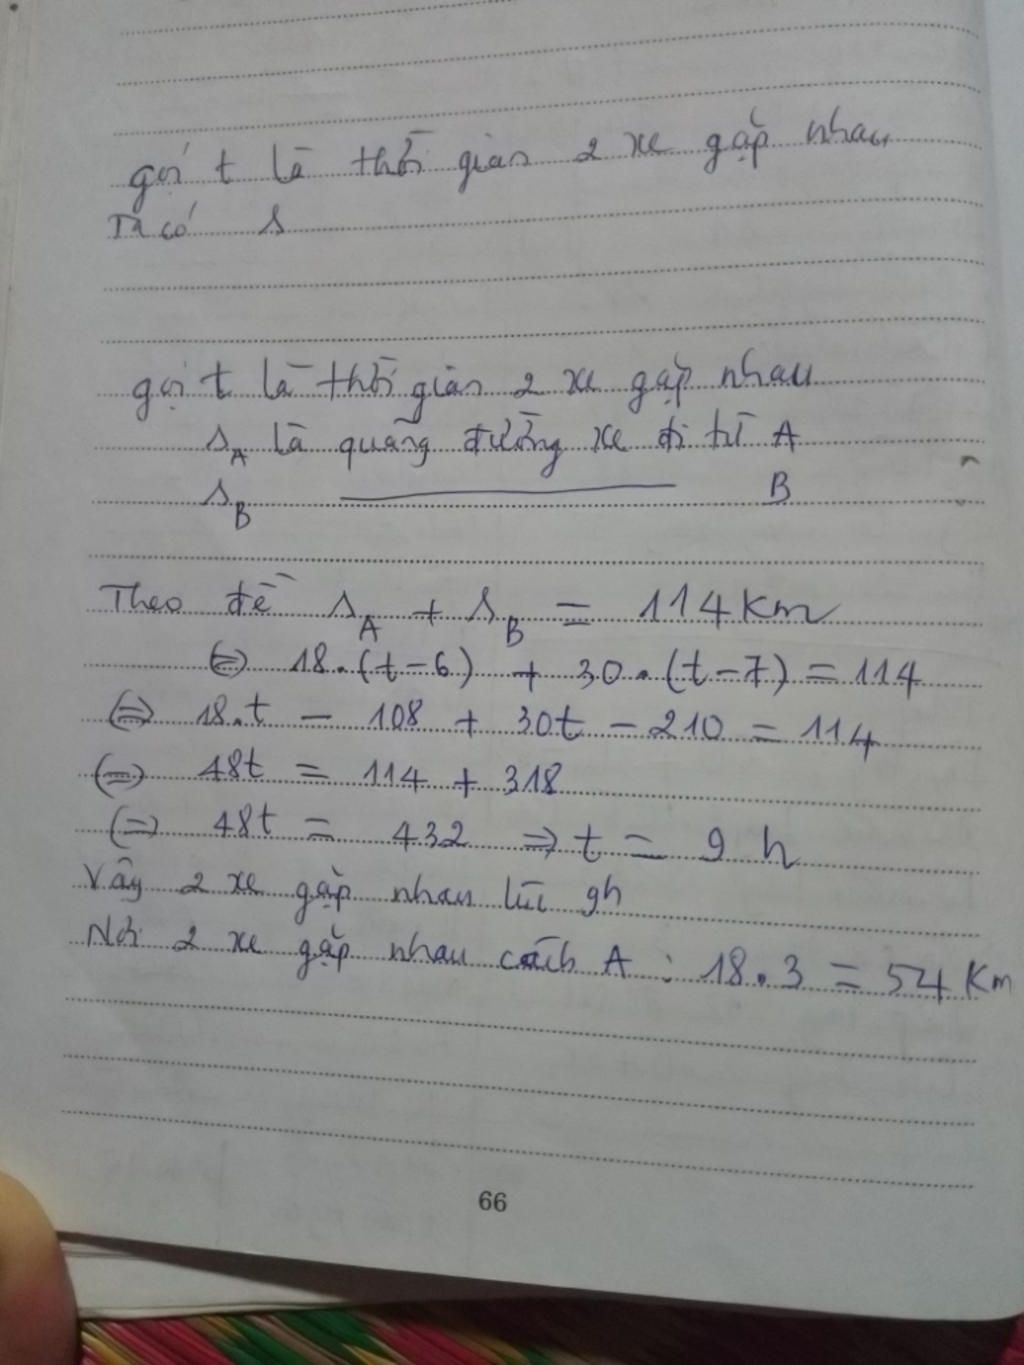 gọi t là thời gian 2 xe gặp nhau
Ta có s
gọi t là thời gian 2 xe gặp nhau
s_A là quãng đường xe đi từ A
s_B ———————— B
Theo đề s_A + s_B = 114 Km
(=) 18.(t-6) + 30.(t-7) = 114
(=) 18.t - 108 + 30t - 210 = 114
(=) 48t = 114 + 318
(=) 48t = 432 => t = 9 h
Vậy 2 xe gặp nhau lúc 9h
Nơi 2 xe gặp nhau cách A : 18.3 = 54 Km
66